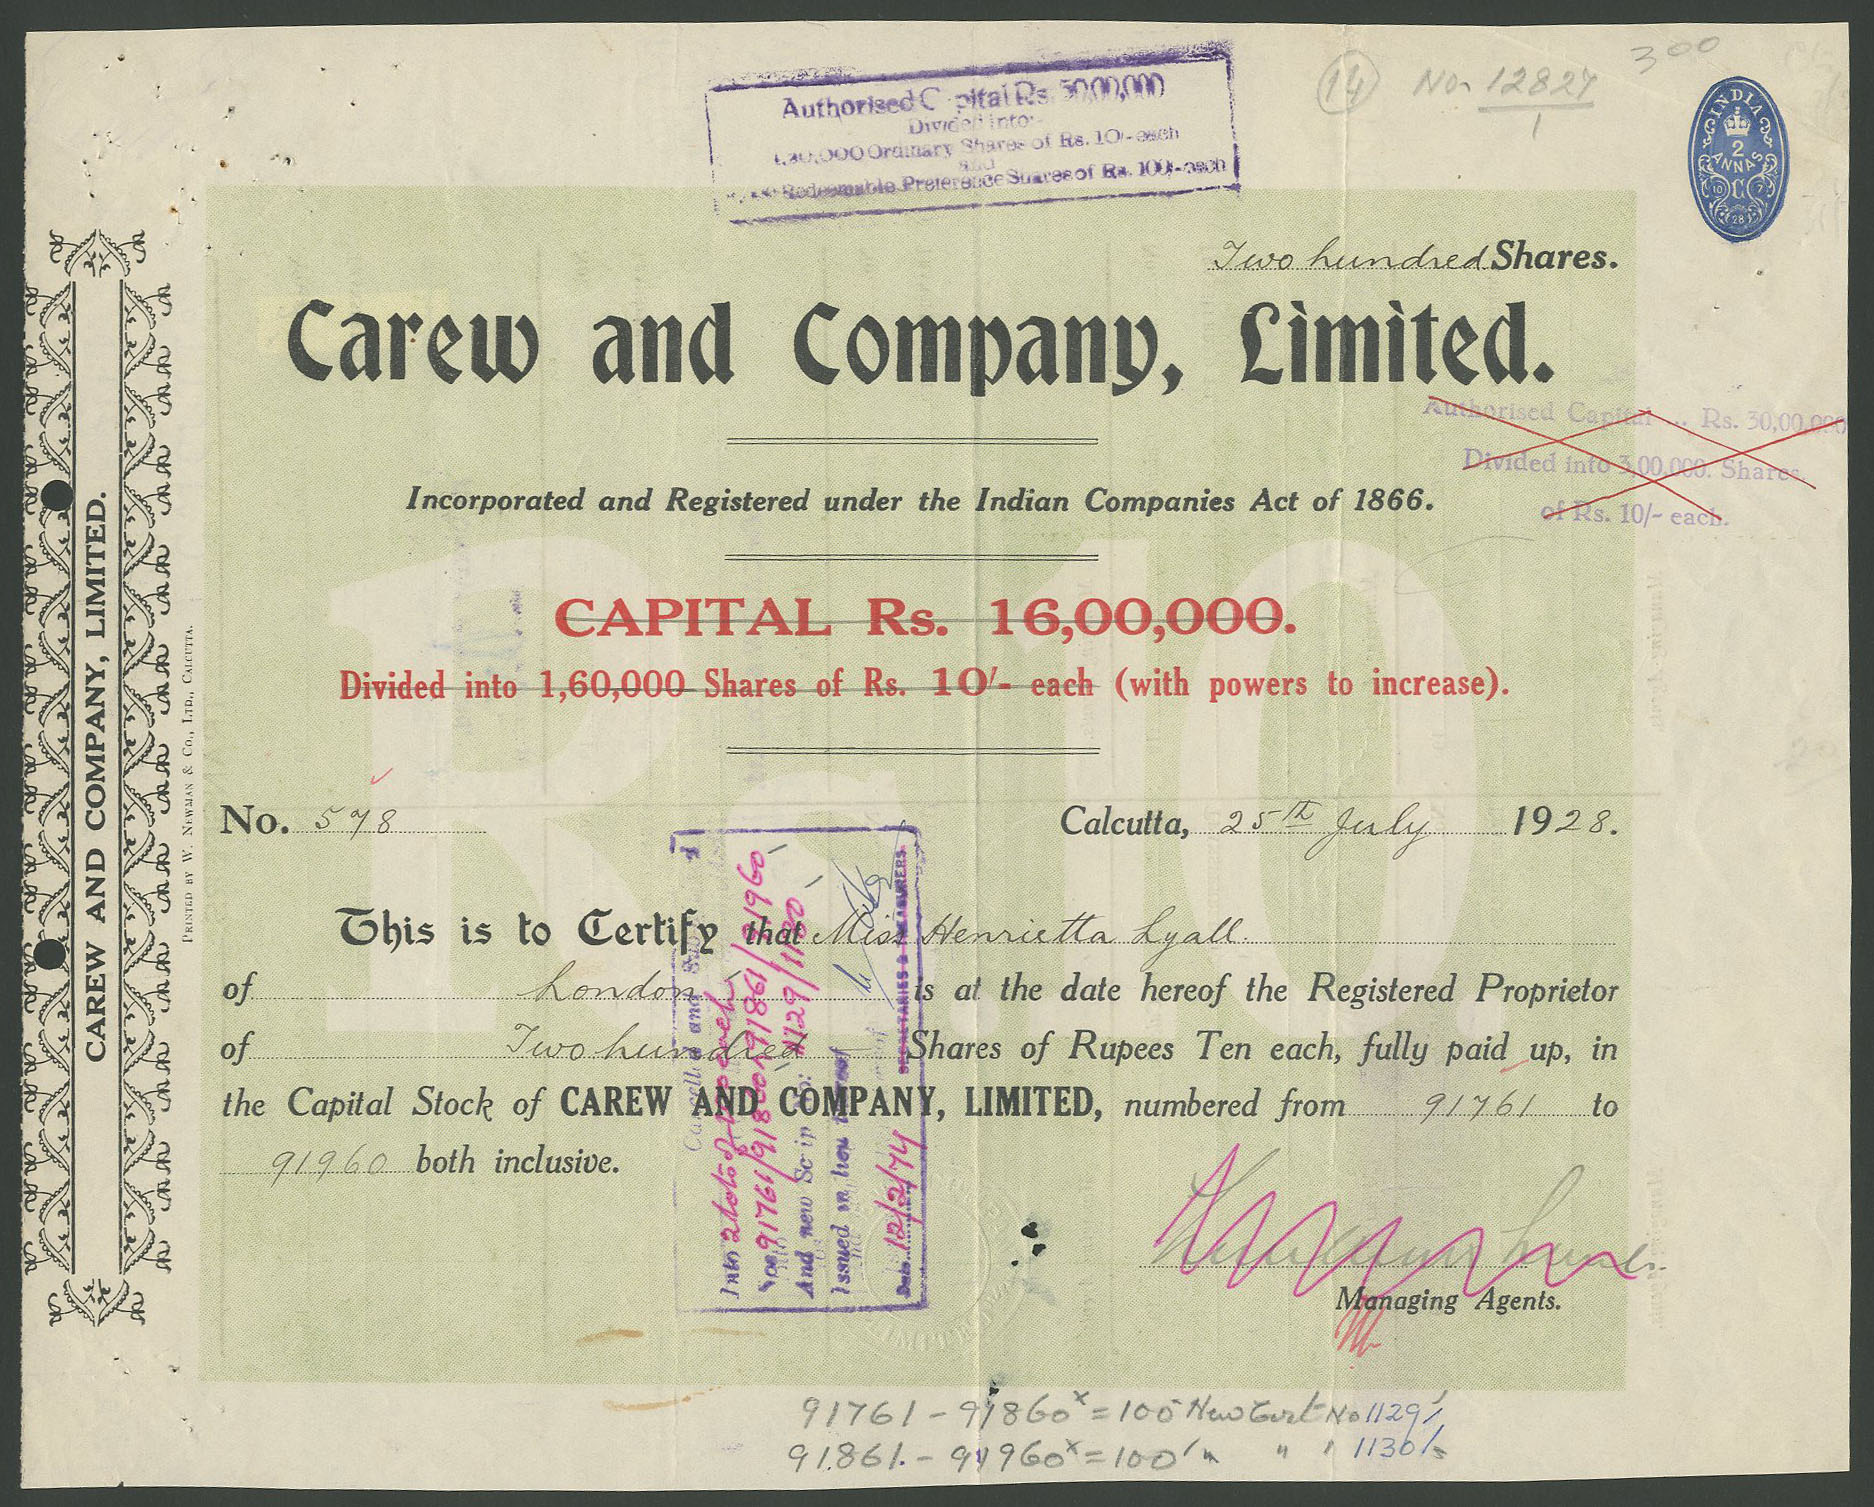 300
14 No. 12827
1
Authorised Capital Rs. 50,00,000
Divided into:-
Ordinary Shares of Rs. 10/- each
and
Redeemable Preference Shares of Rs. 100/- each
INDIA
2
ANNAS
C
10 7
28
Two hundred Shares.
Carew and Company, Limited.
Authorised Capital ... Rs. 30,00,000
Divided into 3,00,000. Shares
of Rs. 10/- each.
Incorporated and Registered under the Indian Companies Act of 1866.
Rs. 10
CAPITAL Rs. 16,00,000.
Divided into 1,60,000 Shares of Rs. 10/- each (with powers to increase).
No. 578
Calcutta, 25th July 1928.
This is to Certify that Miss Henrietta Lyall.
of London is at the date hereof the Registered Proprietor
of Two hundred Shares of Rupees Ten each, fully paid up, in
the Capital Stock of CAREW AND COMPANY, LIMITED, numbered from 91761 to
91960 both inclusive.
Managing Agents.
Cancelled and
Into 2 lots of 100 each
Nos 91761/91860 & 91861/91960
And new Sc ip No: 1129/1130
Issued in lieu thereof
Date 12/2/74
SECRETARIES & TREASURERS
91761 - 91860 x = 100 New Cert No 1129/
91861. - 91960 x = 100 " " " 1130/
CAREW AND COMPANY, LIMITED.
PRINTED BY W. NEWMAN & CO., LTD., CALCUTTA.